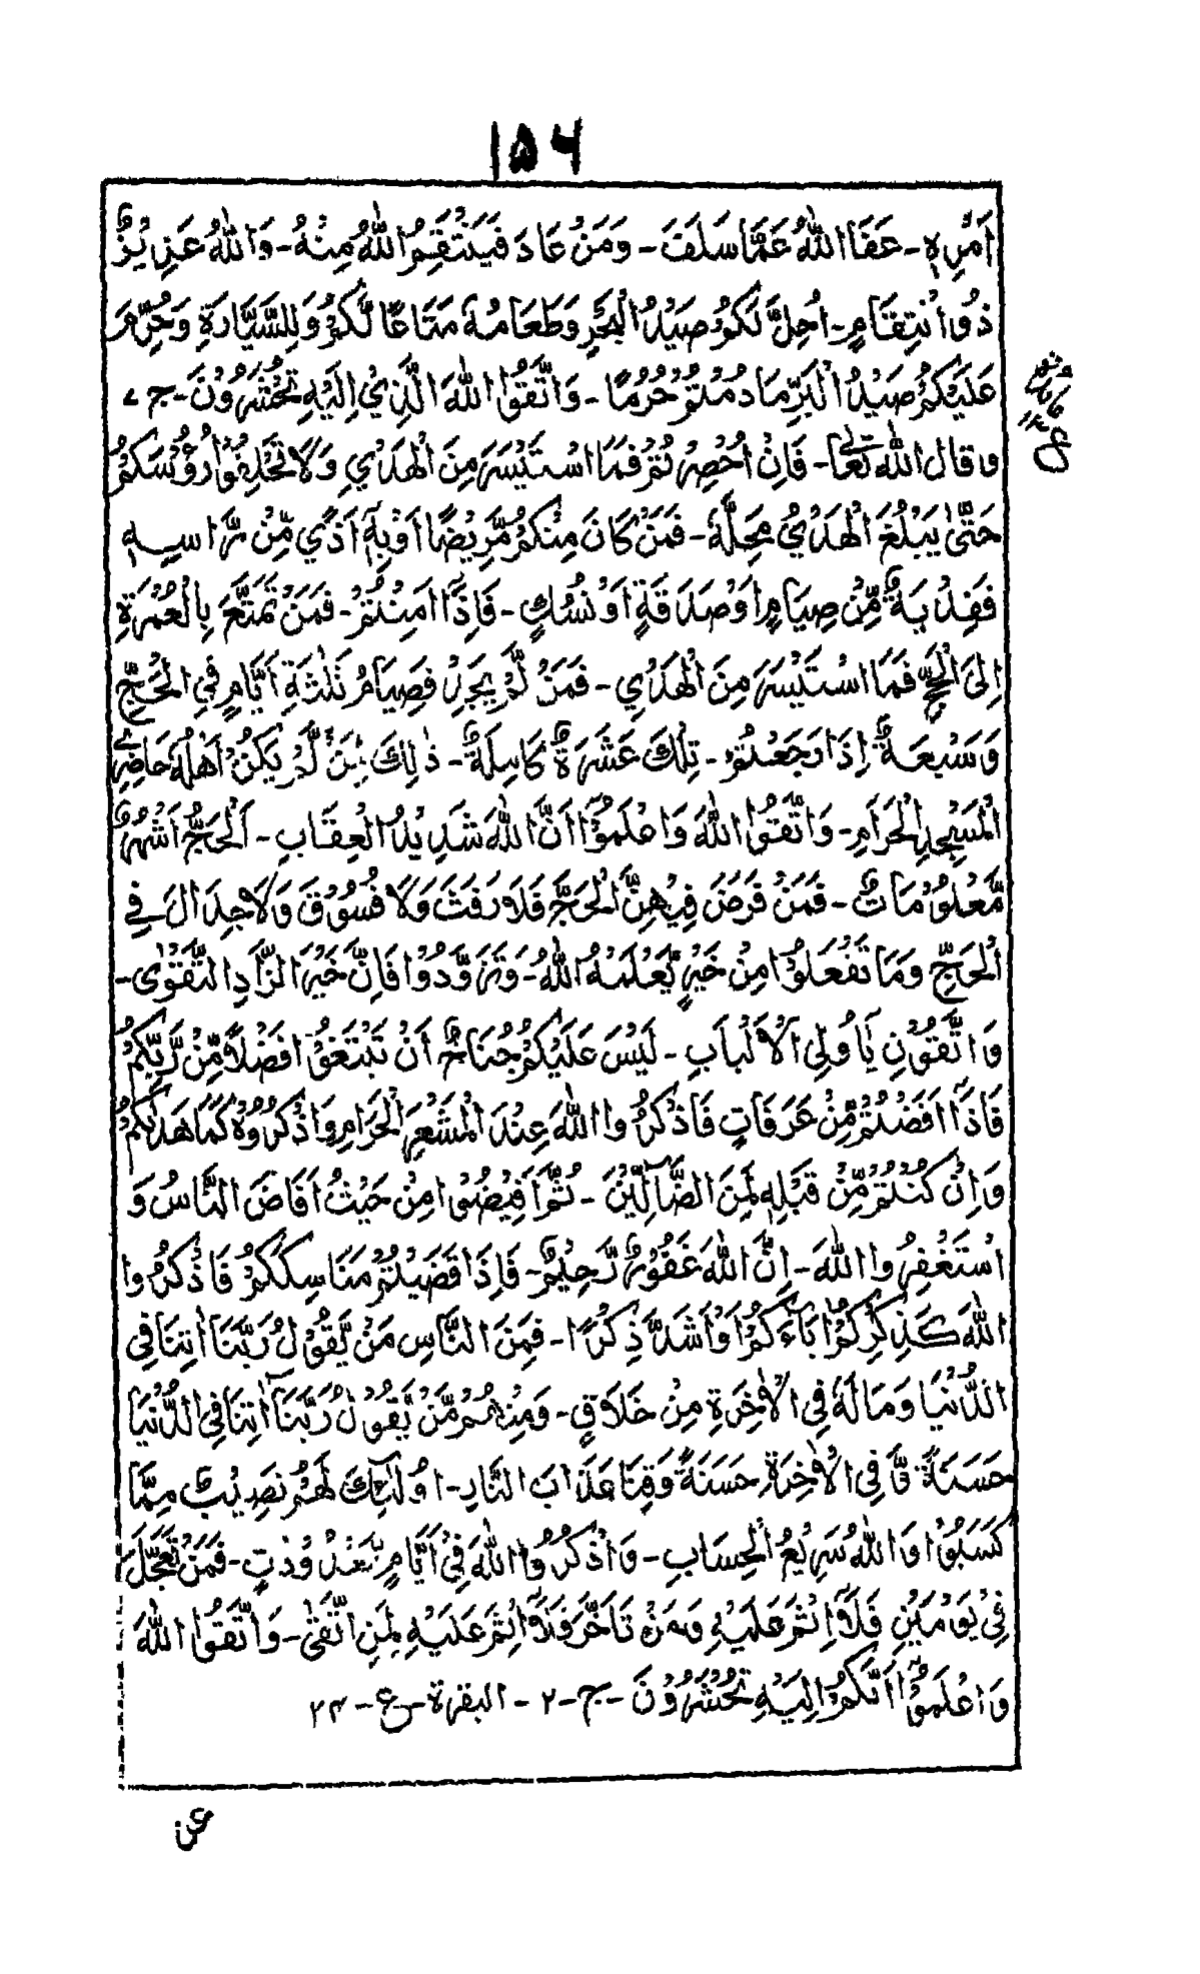 ۱۵۶
اَمْرِهٖ - عَفَا اللّٰهُ عَمَّا سَلَفَ - وَمَنْ عَادَ فَيَنْتَقِمُ اللّٰهُ مِنْهُ - وَاللّٰهُ عَزِيْزٌ
ذُو انْتِقَامٍ - اُحِلَّ لَكُمْ صَيْدُ الْبَحْرِ وَطَعَامُهٗ مَتَاعًا لَّكُمْ وَلِلسَّيَّارَةِ وَحُرِّمَ
عَلَيْكُمْ صَيْدُ الْبَرِّ مَا دُمْتُمْ حُرُمًا - وَاتَّقُوا اللّٰهَ الَّذِيْ اِلَيْهِ تُحْشَرُوْنَ - ج ۷
وقال اللّٰه تعالٰى - فَاِنْ اُحْصِرْتُمْ فَمَا اسْتَيْسَرَ مِنَ الْهَدْيِ وَلَا تَحْلِقُوْا رُءُوْسَكُمْ
حَتّٰى يَبْلُغَ الْهَدْيُ مَحِلَّهٗ - فَمَنْ كَانَ مِنْكُمْ مَّرِيْضًا اَوْ بِهٖٓ اَذًى مِّنْ رَّاْسِهٖ
فَفِدْيَةٌ مِّنْ صِيَامٍ اَوْ صَدَقَةٍ اَوْ نُسُكٍ - فَاِذَآ اَمِنْتُمْ - فَمَنْ تَمَتَّعَ بِالْعُمْرَةِ
اِلَى الْحَجِّ فَمَا اسْتَيْسَرَ مِنَ الْهَدْيِ - فَمَنْ لَّمْ يَجِدْ فَصِيَامُ ثَلٰثَةِ اَيَّامٍ فِي الْحَجِّ
وَسَبْعَةٌ اِذَا رَجَعْتُمْ - تِلْكَ عَشَرَةٌ كَامِلَةٌ - ذٰلِكَ لِمَنْ لَّمْ يَكُنْ اَهْلُهٗ حَاضِرِي
الْمَسْجِدِ الْحَرَامِ - وَاتَّقُوا اللّٰهَ وَاعْلَمُوْٓا اَنَّ اللّٰهَ شَدِيْدُ الْعِقَابِ - اَلْحَجُّ اَشْهُرٌ
مَّعْلُوْمَاتٌ - فَمَنْ فَرَضَ فِيْهِنَّ الْحَجَّ فَلَا رَفَثَ وَلَا فُسُوْقَ وَلَا جِدَالَ فِي
الْحَجِّ وَمَا تَفْعَلُوْا مِنْ خَيْرٍ يَّعْلَمْهُ اللّٰهُ - وَتَزَوَّدُوْا فَاِنَّ خَيْرَ الزَّادِ التَّقْوٰى -
وَاتَّقُوْنِ يَآ اُولِى الْاَلْبَابِ - لَيْسَ عَلَيْكُمْ جُنَاحٌ اَنْ تَبْتَغُوْا فَضْلًا مِّنْ رَّبِّكُمْ
فَاِذَآ اَفَضْتُمْ مِّنْ عَرَفَاتٍ فَاذْكُرُوا اللّٰهَ عِنْدَ الْمَشْعَرِ الْحَرَامِ وَاذْكُرُوْهُ كَمَا هَدٰىكُمْ
وَاِنْ كُنْتُمْ مِّنْ قَبْلِهٖ لَمِنَ الضَّآلِّيْنَ - ثُمَّ اَفِيْضُوْا مِنْ حَيْثُ اَفَاضَ النَّاسُ وَ
اسْتَغْفِرُوا اللّٰهَ - اِنَّ اللّٰهَ غَفُوْرٌ رَّحِيْمٌ - فَاِذَا قَضَيْتُمْ مَّنَاسِكَكُمْ فَاذْكُرُوا
اللّٰهَ كَذِكْرِكُمْ اٰبَآءَكُمْ اَوْ اَشَدَّ ذِكْرًا - فَمِنَ النَّاسِ مَنْ يَّقُوْلُ رَبَّنَآ اٰتِنَا فِى
الدُّنْيَا وَمَا لَهٗ فِى الْاٰخِرَةِ مِنْ خَلَاقٍ - وَمِنْهُمْ مَّنْ يَّقُوْلُ رَبَّنَآ اٰتِنَا فِى الدُّنْيَا
حَسَنَةً وَّفِى الْاٰخِرَةِ حَسَنَةً وَّقِنَا عَذَابَ النَّارِ - اُولٰٓئِكَ لَهُمْ نَصِيْبٌ مِّمَّا
كَسَبُوْا وَاللّٰهُ سَرِيْعُ الْحِسَابِ - وَاذْكُرُوا اللّٰهَ فِيْٓ اَيَّامٍ مَّعْدُوْدٰتٍ - فَمَنْ تَعَجَّلَ
فِيْ يَوْمَيْنِ فَلَآ اِثْمَ عَلَيْهِ وَمَنْ تَاَخَّرَ فَلَآ اِثْمَ عَلَيْهِ لِمَنِ اتَّقٰى - وَاتَّقُوا اللّٰهَ
وَاعْلَمُوْٓا اَنَّكُمْ اِلَيْهِ تُحْشَرُوْنَ - ج - ۲ - البقرة - ع - ۲۴
عن